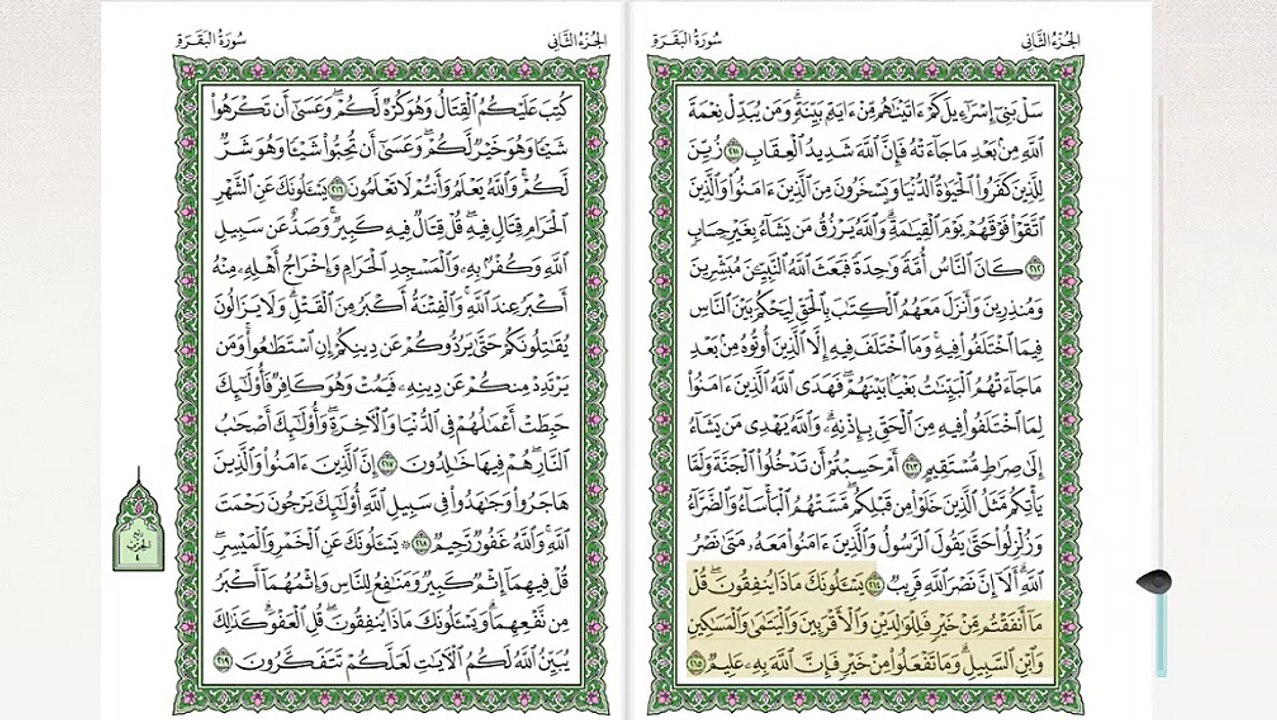 الجزء الثاني
سورة البقرة
سَلْ بَنِىٓ إِسْرَٰٓءِيلَ كَمْ ءَاتَيْنَٰهُم مِّنْ ءَايَةٍۭ بَيِّنَةٍۗ وَمَن يُبَدِّلْ نِعْمَةَ
ٱللَّهِ مِنۢ بَعْدِ مَا جَآءَتْهُ فَإِنَّ ٱللَّهَ شَدِيدُ ٱلْعِقَابِ ٢١١ زُيِّنَ
لِلَّذِينَ كَفَرُواْ ٱلْحَيَوٰةُ ٱلدُّنْيَا وَيَسْخَرُونَ مِنَ ٱلَّذِينَ ءَامَنُواْۘ وَٱلَّذِينَ
ٱتَّقَوْاْ فَوْقَهُمْ يَوْمَ ٱلْقِيَٰمَةِۗ وَٱللَّهُ يَرْزُقُ مَن يَشَآءُ بِغَيْرِ حِسَابٍ
٢١٢ كَانَ ٱلنَّاسُ أُمَّةً وَٰحِدَةً فَبَعَثَ ٱللَّهُ ٱلنَّبِيِّـۧنَ مُبَشِّرِينَ
وَمُنذِرِينَ وَأَنزَلَ مَعَهُمُ ٱلْكِتَٰبَ بِٱلْحَقِّ لِيَحْكُمَ بَيْنَ ٱلنَّاسِ
فِيمَا ٱخْتَلَفُواْ فِيهِۚ وَمَا ٱخْتَلَفَ فِيهِ إِلَّا ٱلَّذِينَ أُوتُوهُ مِنۢ بَعْدِ
مَا جَآءَتْهُمُ ٱلْبَيِّنَٰتُ بَغْيَۢا بَيْنَهُمْۖ فَهَدَى ٱللَّهُ ٱلَّذِينَ ءَامَنُواْ
لِمَا ٱخْتَلَفُواْ فِيهِ مِنَ ٱلْحَقِّ بِإِذْنِهِۦۗ وَٱللَّهُ يَهْدِى مَن يَشَآءُ
إِلَىٰ صِرَٰطٍ مُّسْتَقِيمٍ ٢١٣ أَمْ حَسِبْتُمْ أَن تَدْخُلُواْ ٱلْجَنَّةَ وَلَمَّا
يَأْتِكُم مَّثَلُ ٱلَّذِينَ خَلَوْاْ مِن قَبْلِكُمۖ مَّسَّتْهُمُ ٱلْبَأْسَآءُ وَٱلضَّرَّآءُ
وَزُلْزِلُواْ حَتَّىٰ يَقُولَ ٱلرَّسُولُ وَٱلَّذِينَ ءَامَنُواْ مَعَهُۥ مَتَىٰ نَصْرُ
ٱللَّهِۗ أَلَآ إِنَّ نَصْرَ ٱللَّهِ قَرِيبٌ ٢١٤ يَسْـَٔلُونَكَ مَاذَا يُنفِقُونَۖ قُلْ
مَآ أَنفَقْتُم مِّنْ خَيْرٍ فَلِلْوَٰلِدَيْنِ وَٱلْأَقْرَبِينَ وَٱلْيَتَٰمَىٰ وَٱلْمَسَٰكِينِ
وَٱبْنِ ٱلسَّبِيلِۗ وَمَا تَفْعَلُواْ مِنْ خَيْرٍ فَإِنَّ ٱللَّهَ بِهِۦ عَلِيمٌ ٢١٥
الجزء الثاني
سورة البقرة
كُتِبَ عَلَيْكُمُ ٱلْقِتَالُ وَهُوَ كُرْهٌ لَّكُمْۖ وَعَسَىٰٓ أَن تَكْرَهُواْ
شَيْـًٔا وَهُوَ خَيْرٌ لَّكُمْۖ وَعَسَىٰٓ أَن تُحِبُّواْ شَيْـًٔا وَهُوَ شَرٌّ
لَّكُمْۗ وَٱللَّهُ يَعْلَمُ وَأَنتُمْ لَا تَعْلَمُونَ ٢١٦ يَسْـَٔلُونَكَ عَنِ ٱلشَّهْرِ
ٱلْحَرَامِ قِتَالٍ فِيهِۖ قُلْ قِتَالٌ فِيهِ كَبِيرٌۖ وَصَدٌّ عَن سَبِيلِ
ٱللَّهِ وَكُفْرٌۢ بِهِۦ وَٱلْمَسْجِدِ ٱلْحَرَامِ وَإِخْرَاجُ أَهْلِهِۦ مِنْهُ
أَكْبَرُ عِندَ ٱللَّهِۚ وَٱلْفِتْنَةُ أَكْبَرُ مِنَ ٱلْقَتْلِۗ وَلَا يَزَالُونَ
يُقَٰتِلُونَكُمْ حَتَّىٰ يَرُدُّوكُمْ عَن دِينِكُمْ إِنِ ٱسْتَطَٰعُواْۚ وَمَن
يَرْتَدِدْ مِنكُمْ عَن دِينِهِۦ فَيَمُتْ وَهُوَ كَافِرٌ فَأُوْلَٰٓئِكَ
حَبِطَتْ أَعْمَٰلُهُمْ فِى ٱلدُّنْيَا وَٱلْءَاخِرَةِۖ وَأُوْلَٰٓئِكَ أَصْحَٰبُ
ٱلنَّارِۖ هُمْ فِيهَا خَٰلِدُونَ ٢١٧ إِنَّ ٱلَّذِينَ ءَامَنُواْ وَٱلَّذِينَ
هَاجَرُواْ وَجَٰهَدُواْ فِى سَبِيلِ ٱللَّهِ أُوْلَٰٓئِكَ يَرْجُونَ رَحْمَتَ
ٱللَّهِۚ وَٱللَّهُ غَفُورٌ رَّحِيمٌ ٢١٨ ۞ يَسْـَٔلُونَكَ عَنِ ٱلْخَمْرِ وَٱلْمَيْسِرِۖ
قُلْ فِيهِمَآ إِثْمٌ كَبِيرٌ وَمَنَٰفِعُ لِلنَّاسِ وَإِثْمُهُمَآ أَكْبَرُ
مِن نَّفْعِهِمَاۗ وَيَسْـَٔلُونَكَ مَاذَا يُنفِقُونَۖ قُلِ ٱلْعَفْوَۗ كَذَٰلِكَ
يُبَيِّنُ ٱللَّهُ لَكُمُ ٱلْءَايَٰتِ لَعَلَّكُمْ تَتَفَكَّرُونَ ٢١٩
ربع
الحزب
٤